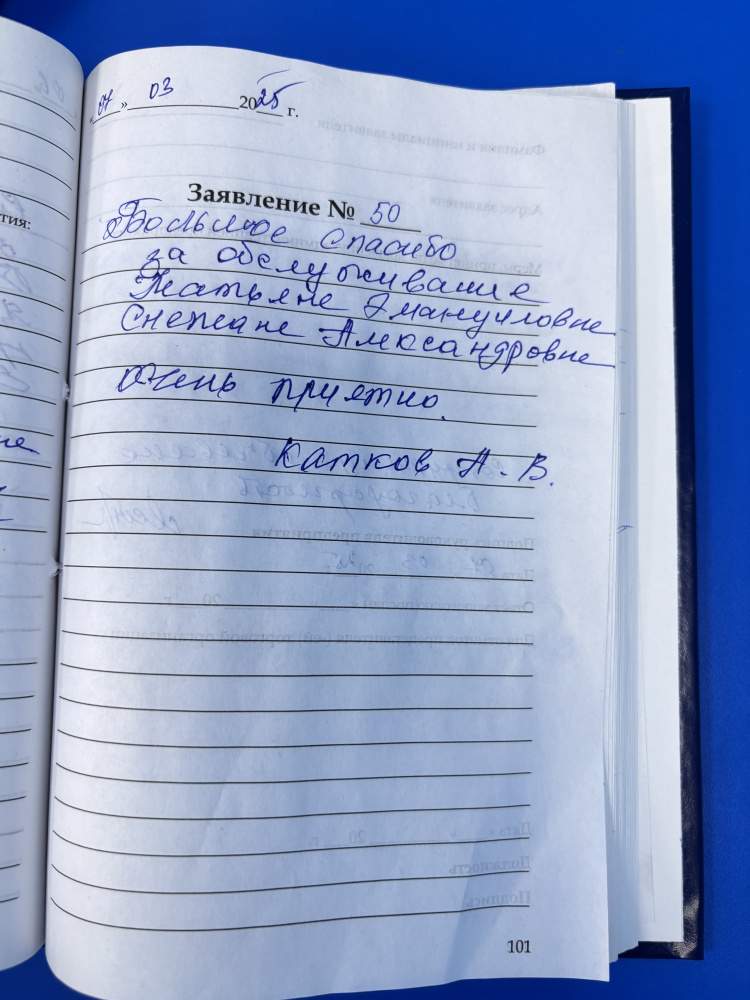 «07» 03 2025 г.
Заявление № 50
Большое спасибо
за обслуживание
Татьяне Эмануиловне
Снежане Александровне
Очень приятно.
Катков А. В.
101
тия: